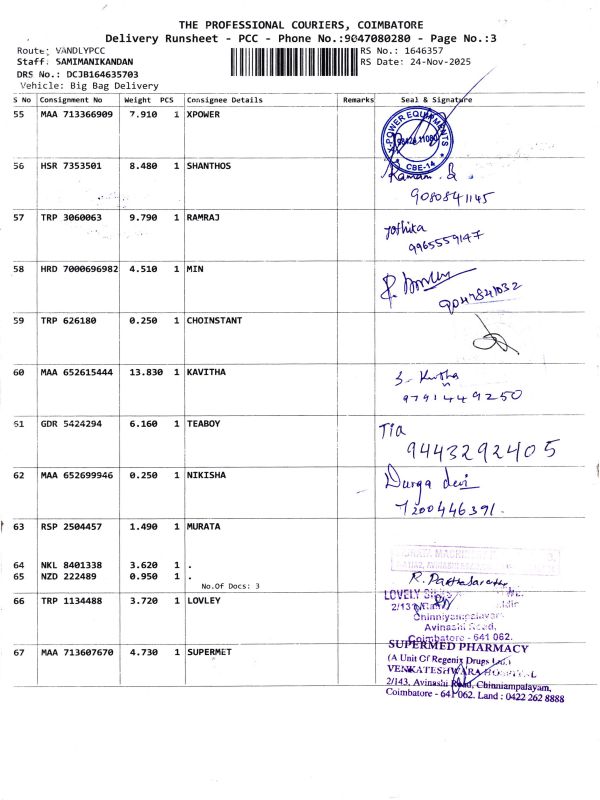 THE PROFESSIONAL COURIERS, COIMBATORE
Delivery Runsheet - PCC - Phone No.:9047080280 - Page No.:3
Route: VANDLYPCC RS No.: 1646357
Staff: SAMIMANIKANDAN RS Date: 24-Nov-2025
DRS No.: DCJB164635703
Vehicle: Big Bag Delivery
S No Consignment No Weight PCS Consignee Details Remarks Seal & Signature
55 MAA 713366909 7.910 1 XPOWER
X-POWER EQUIPMENTS
CBE-14
56 HSR 7353501 8.480 1 SHANTHOS
9080841145
57 TRP 3060063 9.790 1 RAMRAJ
Jothika
9965559147
58 HRD 7000696982 4.510 1 MIN
9047841032
59 TRP 626180 0.250 1 CHOINSTANT
60 MAA 652615444 13.830 1 KAVITHA
9791449250
61 GDR 5424294 6.160 1 TEABOY
Tia
9443292405
62 MAA 652699946 0.250 1 NIKISHA
Durga devi
7200446391.
63 RSP 2504457 1.490 1 MURATA
64 NKL 8401338 3.620 1 .
65 NZD 222489 0.950 1 .
No.Of Docs: 3
R. Parthasarathy
66 TRP 1134488 3.720 1 LOVLEY
LOVELY
2/13
Chinniyampalayam
Avinashi Road,
Coimbatore - 641 062.
67 MAA 713607670 4.730 1 SUPERMET
SUPERMED PHARMACY
(A Unit Of Regenix Drugs Ltd.)
VENKATESHWARA HOSPITAL
2/143, Avinashi Road, Chinniampalayam,
Coimbatore - 641 062. Land : 0422 262 8888